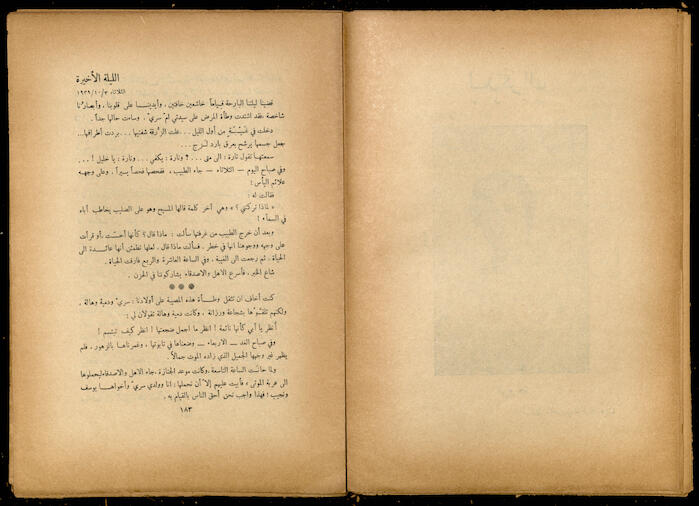 الليلة الأخيرة
الثلاثاء ٣/١٠/١٩٣٩
قضينا ليلتنا البارحة قياماً خاشعين خائفين ، وأيدينا على قلوبنا ، وأبصارنا
شاخصة ، فقد اشتدت وطأة المرض على سيدتي ام سريّ ، وساءت حالها جداً .
دخلت في غيبة من أول الليل ... علت الزرقة شفتيها ... بردت أطرافها ...
جسمها يرشح بعرق بارد لزج ...
سمعتها تقول تارة : الى متى ... ؟ وتارة : يكفي ... وتارة : يا خليل ! ...
وفي صباح اليوم — الثلاثاء — جاء الطبيب ، ففحصها فحصاً يسيراً ، وعلى وجهه
علائم اليأس !
فقالت له :
« لماذا تركتني ؟ » وهي آخر كلمة قالها المسيح وهو على الصليب يخاطب أباه
في السماء !
وبعد أن خرج الطبيب من غرفتها سألت : ماذا قال ؟ كأنها أحست ، أو قرأت
على وجهه ووجوهنا انها في خطر . فسألت ماذا قال ، لعلها تطمئن أنها عائدة الى
الحياة . ثم رجعت الى الغيبة . وفي الساعة العاشرة والربع فارقت الحياة .
شاع الخبر ، فأسرع الاهل والاصدقاء يشاركوننا في الحزن .
كنت أخاف ان تثقل وطأة هذه المصيبة على أولادنا : سريّ ودمية وهالة ،
ولكنهم تلقوها بشجاعة ورزانة . وكانت دمية وهالة تقولان لي :
أنظر يا أبي كأنها نائمة ! انظر ما اجمل ضجعتها ! انظر كيف تبتسم !
وفي صباح الغد — الاربعاء — وضعناها في تابوتها ، وغمرناها بالزهور ، فلم
يظهر غير وجهها الجميل الذي زاده الموت جمالاً .
ولما حانت الساعة التاسعة ، وكانت موعد الجنازة ، جاء الاهل والاصدقاء ليحملوها
الى عربة الموتى ، فأبيت عليهم إلا أن نحملها : انا وولدي سريّ وأخواها يوسف
ونجيب ! فهذا واجب نحن أحق الناس بالقيام به .
١٨٣